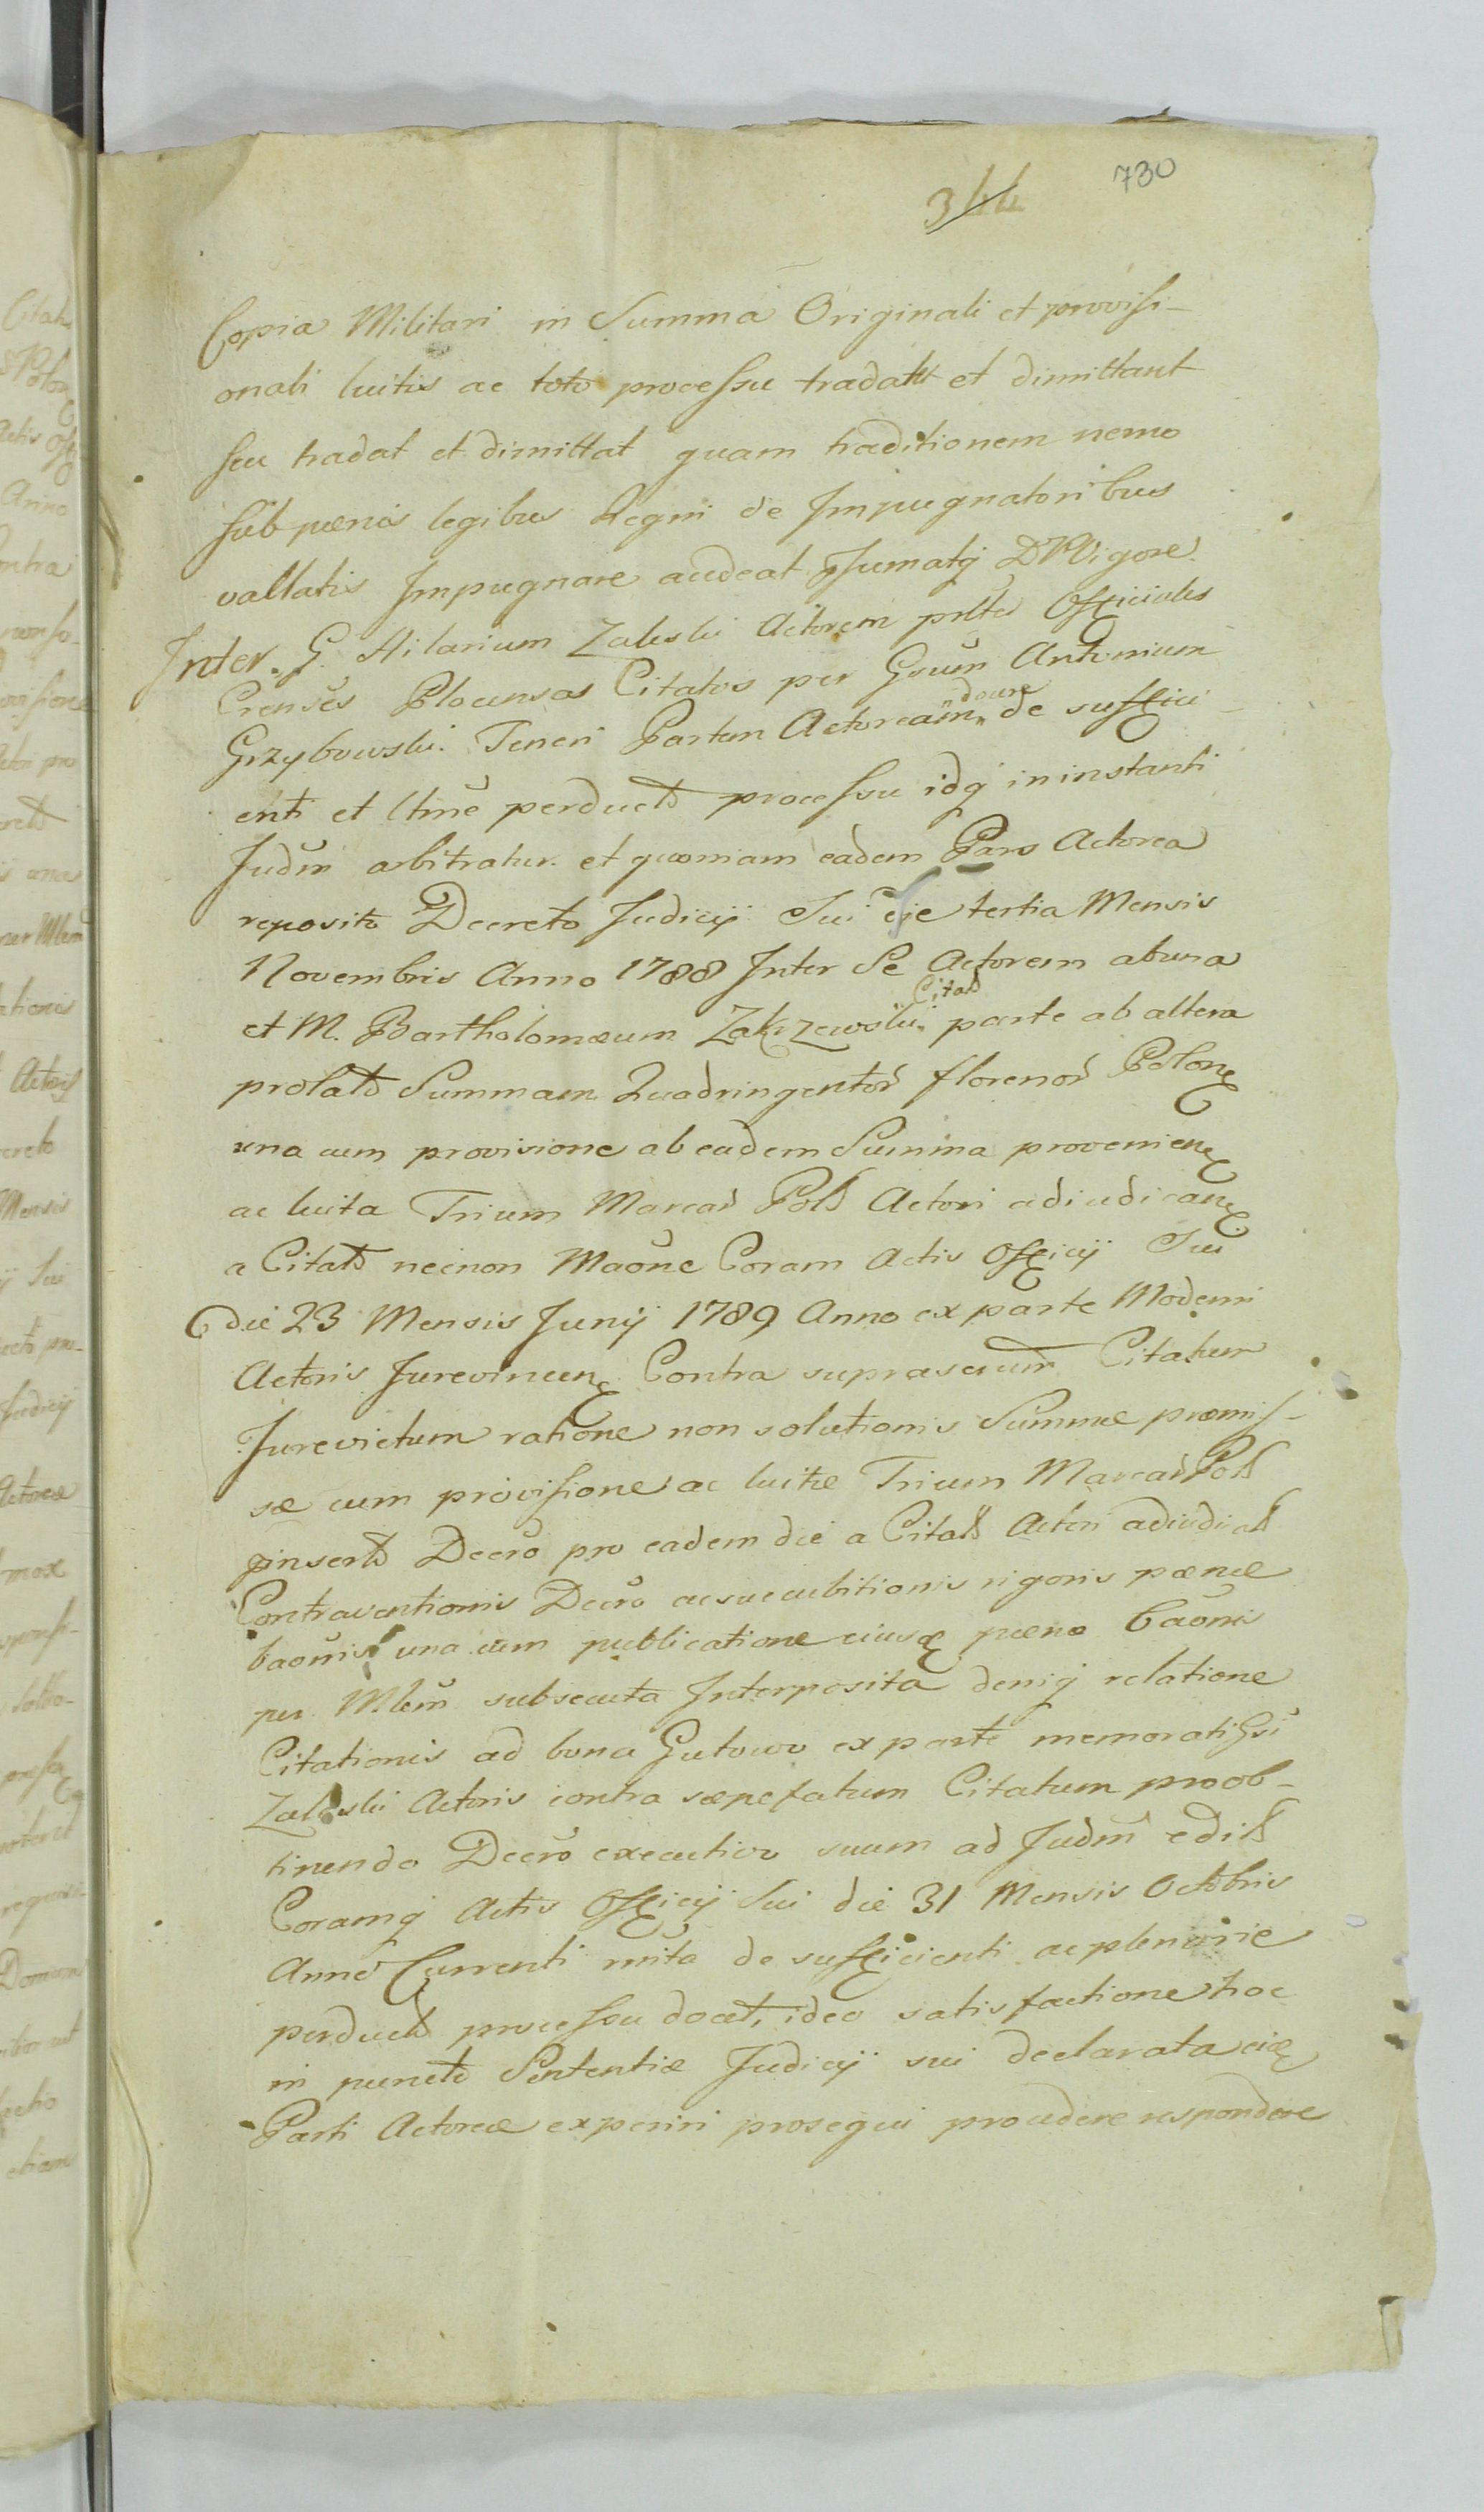 730
344
Copia Militari in Summa Originali et provisi-
onali luitis ac toto processu tradatt et dimittant
seu tradat et dimittat quam traditionem nemo
sub pœnis legibus Regni de Impugnatoribus
vallatis Impugnare audeat Vigore
Inter. G. Hilarium Zaleski Actorem Officiales
Crenses Plocenses Citatos per Gsum Antonium
Grzybowski. Teneri Partem Actoream docere de suffici-
enti et ltime perducto processu idq in instanti
Judm arbitratur et quoniam eadem Pars Actorea
reposito Decreto Judicij Sui die tertia Mensis
Novembris Anno 1788 Inter Se Actorem ab una
et M. Bartholomæum Zakrzewski Citat parte ab altera
prolato Summam Quadringentor florenor Polon
una cum provisione ab eadem Summa provenien
ac luita Trium Marcar Pol Actori adiudican
a Citato necnon Maone Coram Actis Officij Sui
die 23 Mensis Junij 1789 Anno ex parte Moderni
Actoris Jurevincen Contra suprascrium Citatum
Jurevictum ratione non solutionis Summæ præmis-
sæ cum provisione ac luitæ Trium Marcar Pol
pinserto Decro pro eadem die a Citato Actori adiudicat
Contraventionis Decro ac succubitionis rigoris pœnæ
baonis una cum publicatione eiusd pœnæ baonis
per Mlem subsecuta Interposita deniq relatione
Citationis ad bona Gutowo ex parte memorati Gsi
Zaleski Actoris contra sæpefatum Citatum pro ob-
tinendo Decro executivo suum ad Judm edit
Coramq Actis Officij Sui die 31 Mensis Octobris
Anno Currenti de sufficienti ac plenarie
perducto processu docet, ideo satisfactione hoc
in puncto Sententiæ Judicij sui declarata eid
Parti Actoreæ experiri prosequi procedere respondere